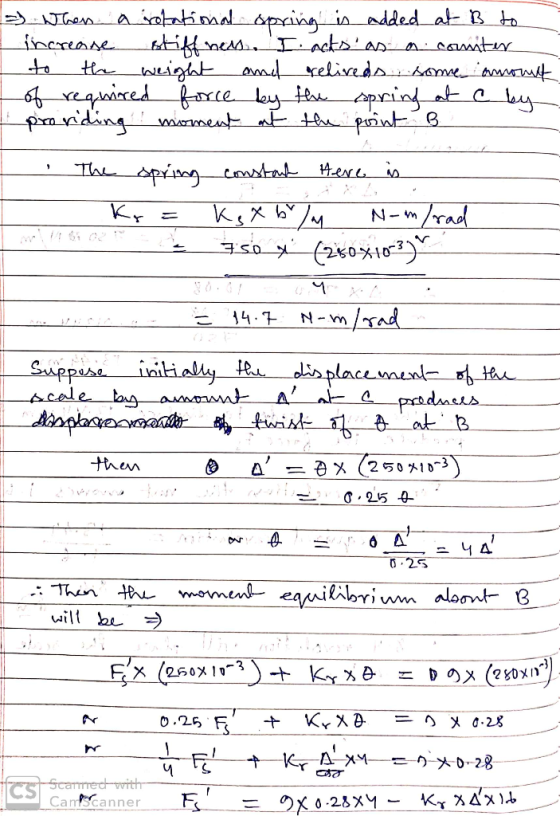 ⇒ When a rotational spring is added at B to
increase stiffness. I. acts as a counter
to the weight and reliveds some amount
of required force by the spring at C by
providing moment at the point B
The spring constant Here is
Kr = Ks × b²/4 N-m/rad
= 750 × (280×10⁻³)²
4
= 14.7 N-m/rad
Suppose initially the displacement of the
scale by amount Δ' at C produces
twist of θ at B
then Δ' = θ × (250×10⁻³)
= 0.25 θ
or θ = Δ'/0.25 = 4Δ'
∴ Then the moment equilibrium about B
will be ⇒
Fs' × (250×10⁻³) + Kr × θ = 9 × (280×10⁻³)
or 0.25 Fs' + Kr × θ = 9 × 0.28
or 1/4 Fs' + Kr Δ' × 4 = 9 × 0.28
or Fs' = 9 × 0.28 × 4 − Kr × Δ' × 16
CS Scanned with
CamScanner